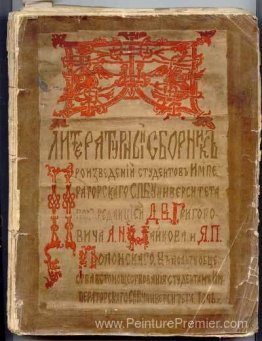 ЛИТЕРАТУРНЫЙ СБОРНИКЪ
ПРОИЗВЕДЕНІЙ СТУДЕНТОВЪ ИМПЕ
РАТОРСКАГО СПБ УНИВЕРСИТЕТА
ПОДЪ РЕДАКЦІЕЙ Д.В. ГРИГОРО
ВИЧА А.Н. МАЙКОВА И Я.П.
ПОЛОНСКАГО.
СТУДЕНТАМЪ ИМ
ПЕРАТОРСКАГО СПБ УНИВЕРСИТЕТА
www.PeinturePremier.com